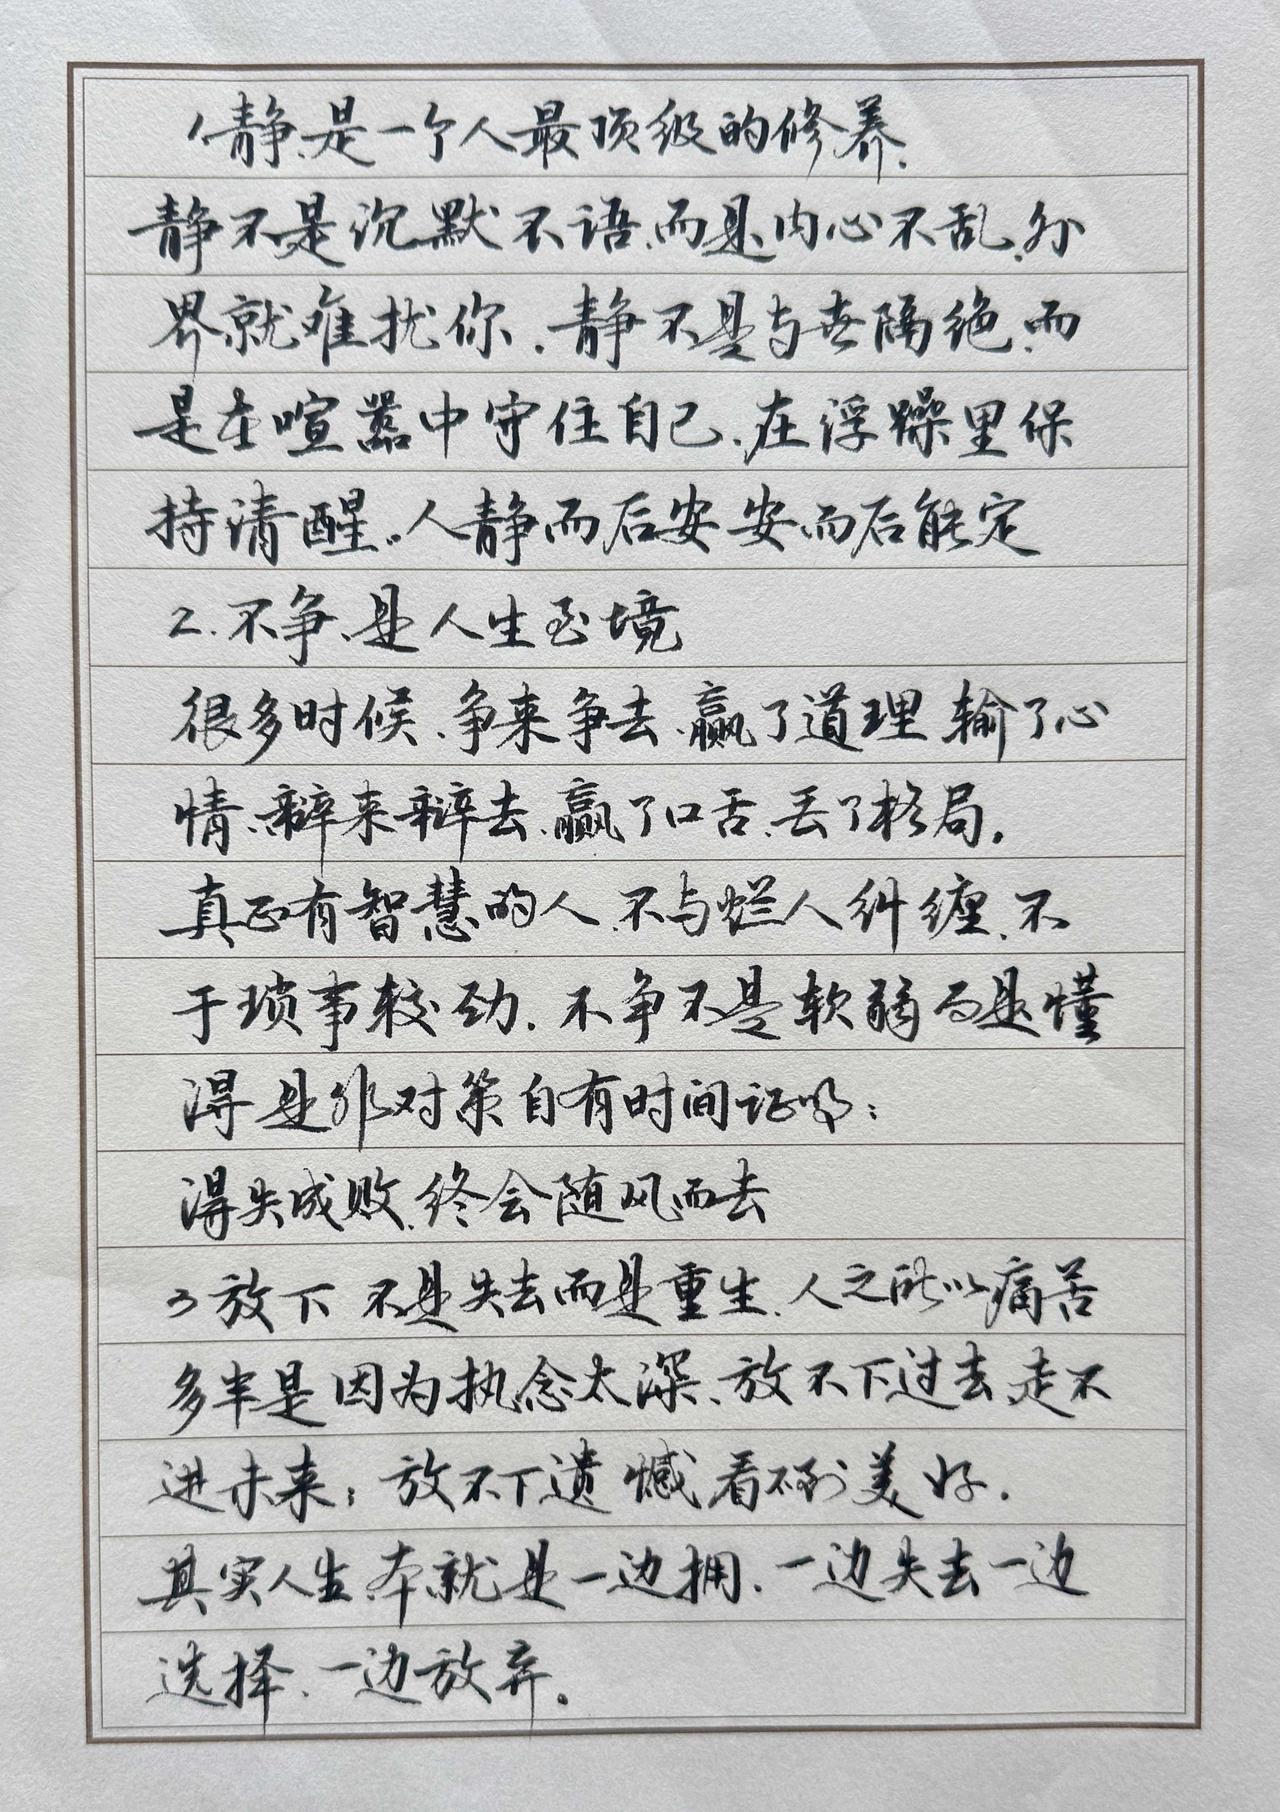 1、静、是一个人最顶级的修养.
静不是沉默不语、而是内心不乱.外
界就难扰你.静不是与世隔绝、而
是在喧嚣中守住自己.在浮躁里保
持清醒。人静而后安安、而后能定
2.不争、是人生至境
很多时候、争来争去、赢了道理 输了心
情、辩来辩去、赢了口舌、丢了格局。
真正有智慧的人、不与烂人纠缠、不
于琐事较劲.不争不是软弱而是懂
得是非对策自有时间证明:
得失成败、终会随风而去
3放下 不是失去而是重生.人之所以痛苦
多半是因为执念太深、放不下过去、走不
进未来;放不下遗憾看不到美好.
其实人生本就是一边拥.一边失去一边
选择、一边放弃。